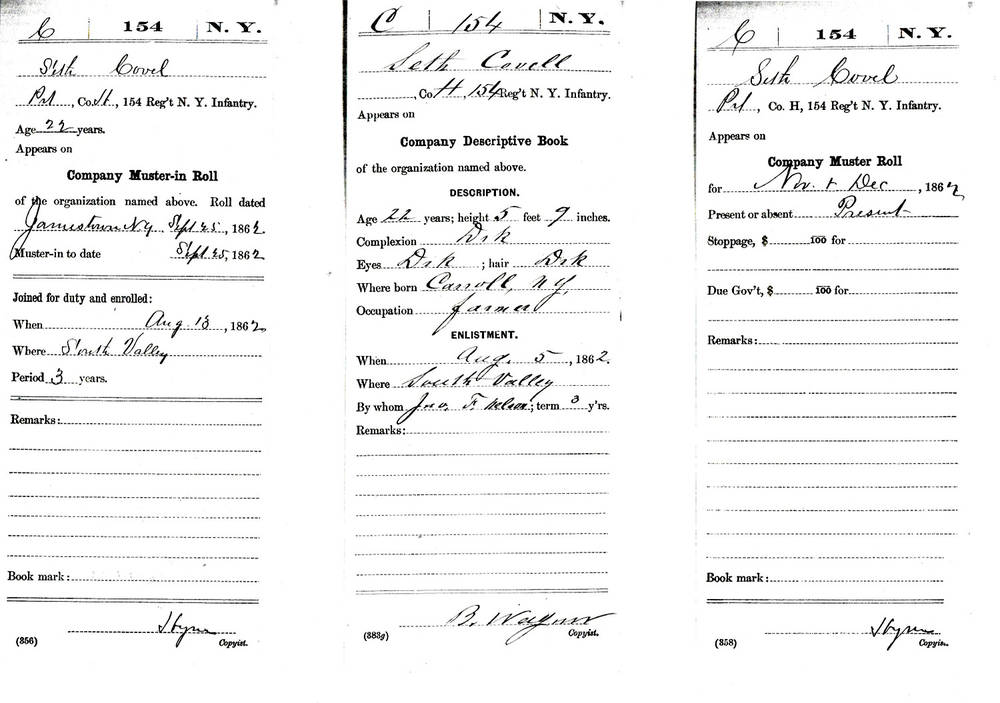 C | 154 | N. Y.
Seth Covel
Pvt, Co. H, 154 Reg't N. Y. Infantry.
Age 22 years.
Appears on
Company Muster-in Roll
of the organization named above. Roll dated
Jamestown N.Y. Sept 25, 1862.
Muster-in to date Sept 25, 1862
Joined for duty and enrolled:
When Aug 13, 1862
Where South Valley
Period 3 years.
Remarks:
Book mark:
(356) Copyist.
C | 154 | N. Y.
Seth Covell
, Co. H, 154 Reg't N. Y. Infantry.
Appears on
Company Descriptive Book
of the organization named above.
DESCRIPTION.
Age 22 years; height 5 feet 9 inches.
Complexion Drk
Eyes Drk ; hair Drk
Where born Carroll, NY,
Occupation farmer
ENLISTMENT.
When Aug. 5, 1862.
Where South Valley
By whom Jno. F. Nelson; term 3 y'rs.
Remarks:
B. Wagner
(383g) Copyist.
C | 154 | N. Y.
Seth Covel
Pvt, Co. H, 154 Reg't N. Y. Infantry.
Appears on
Company Muster Roll
for Nov. & Dec, 1862
Present or absent Present
Stoppage, $ 100 for
Due Gov't, $ 100 for
Remarks:
Book mark:
(358) Copyist.